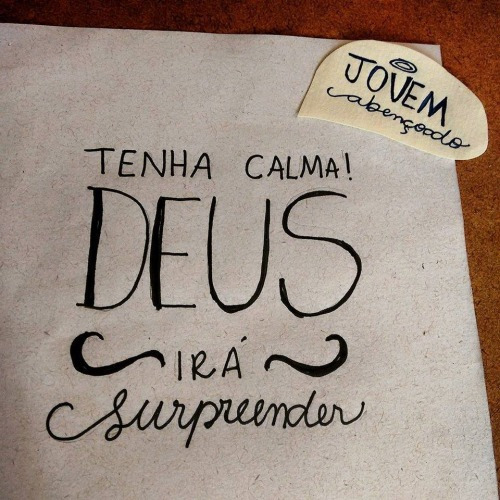 JOVEM
abençoado
TENHA CALMA!
DEUS
IRÁ
surpreender